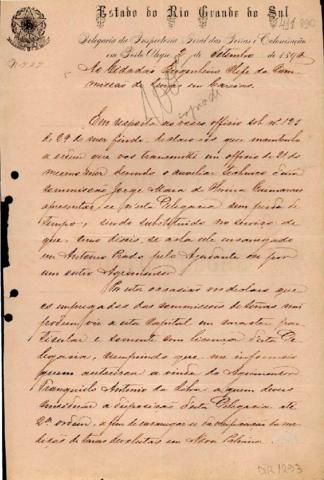 Estado do Rio Grande do Sul
Delegacia da Inspectoria Geral das Terras e Colonisação
em Porto Alegre 2 de Setembro de 189
Ao Cidadão Engenheiro Chefe da Com-
missão de Terras em Caxias.
Em resposta ao vosso officio sob nº 125
de 29 do mez findo, declaro-vos que mantenho
a ordem que vos transmitti em officio de 21 do
mesmo mez devendo o auxiliar technico d'essa
commissão Jorge Maia de Oliveira Guimarães
apresentar-se n'esta Delegacia sem perda de
tempo, sendo substituido no serviço de
que, como dizeis, se acha elle encarregado
em Antonio Prado pelo Ajudante ou por
um outro Agrimensor.
N'esta occasião vos declaro que
os empregados das commissões de terras não
podem vir a esta Capital em caracter par-
ticular e somente com licença d'esta De-
legacia, cumprindo que me informeis
quem autorisou a vinda do Agrimensor
Tranquilo Antonio da Silva, a quem deveis
considerar a disposição d'esta Delegacia até
2ª ordem, a fim de encarregar-se da
medição de terras devolutas em Nova Palmira
DIR 1293